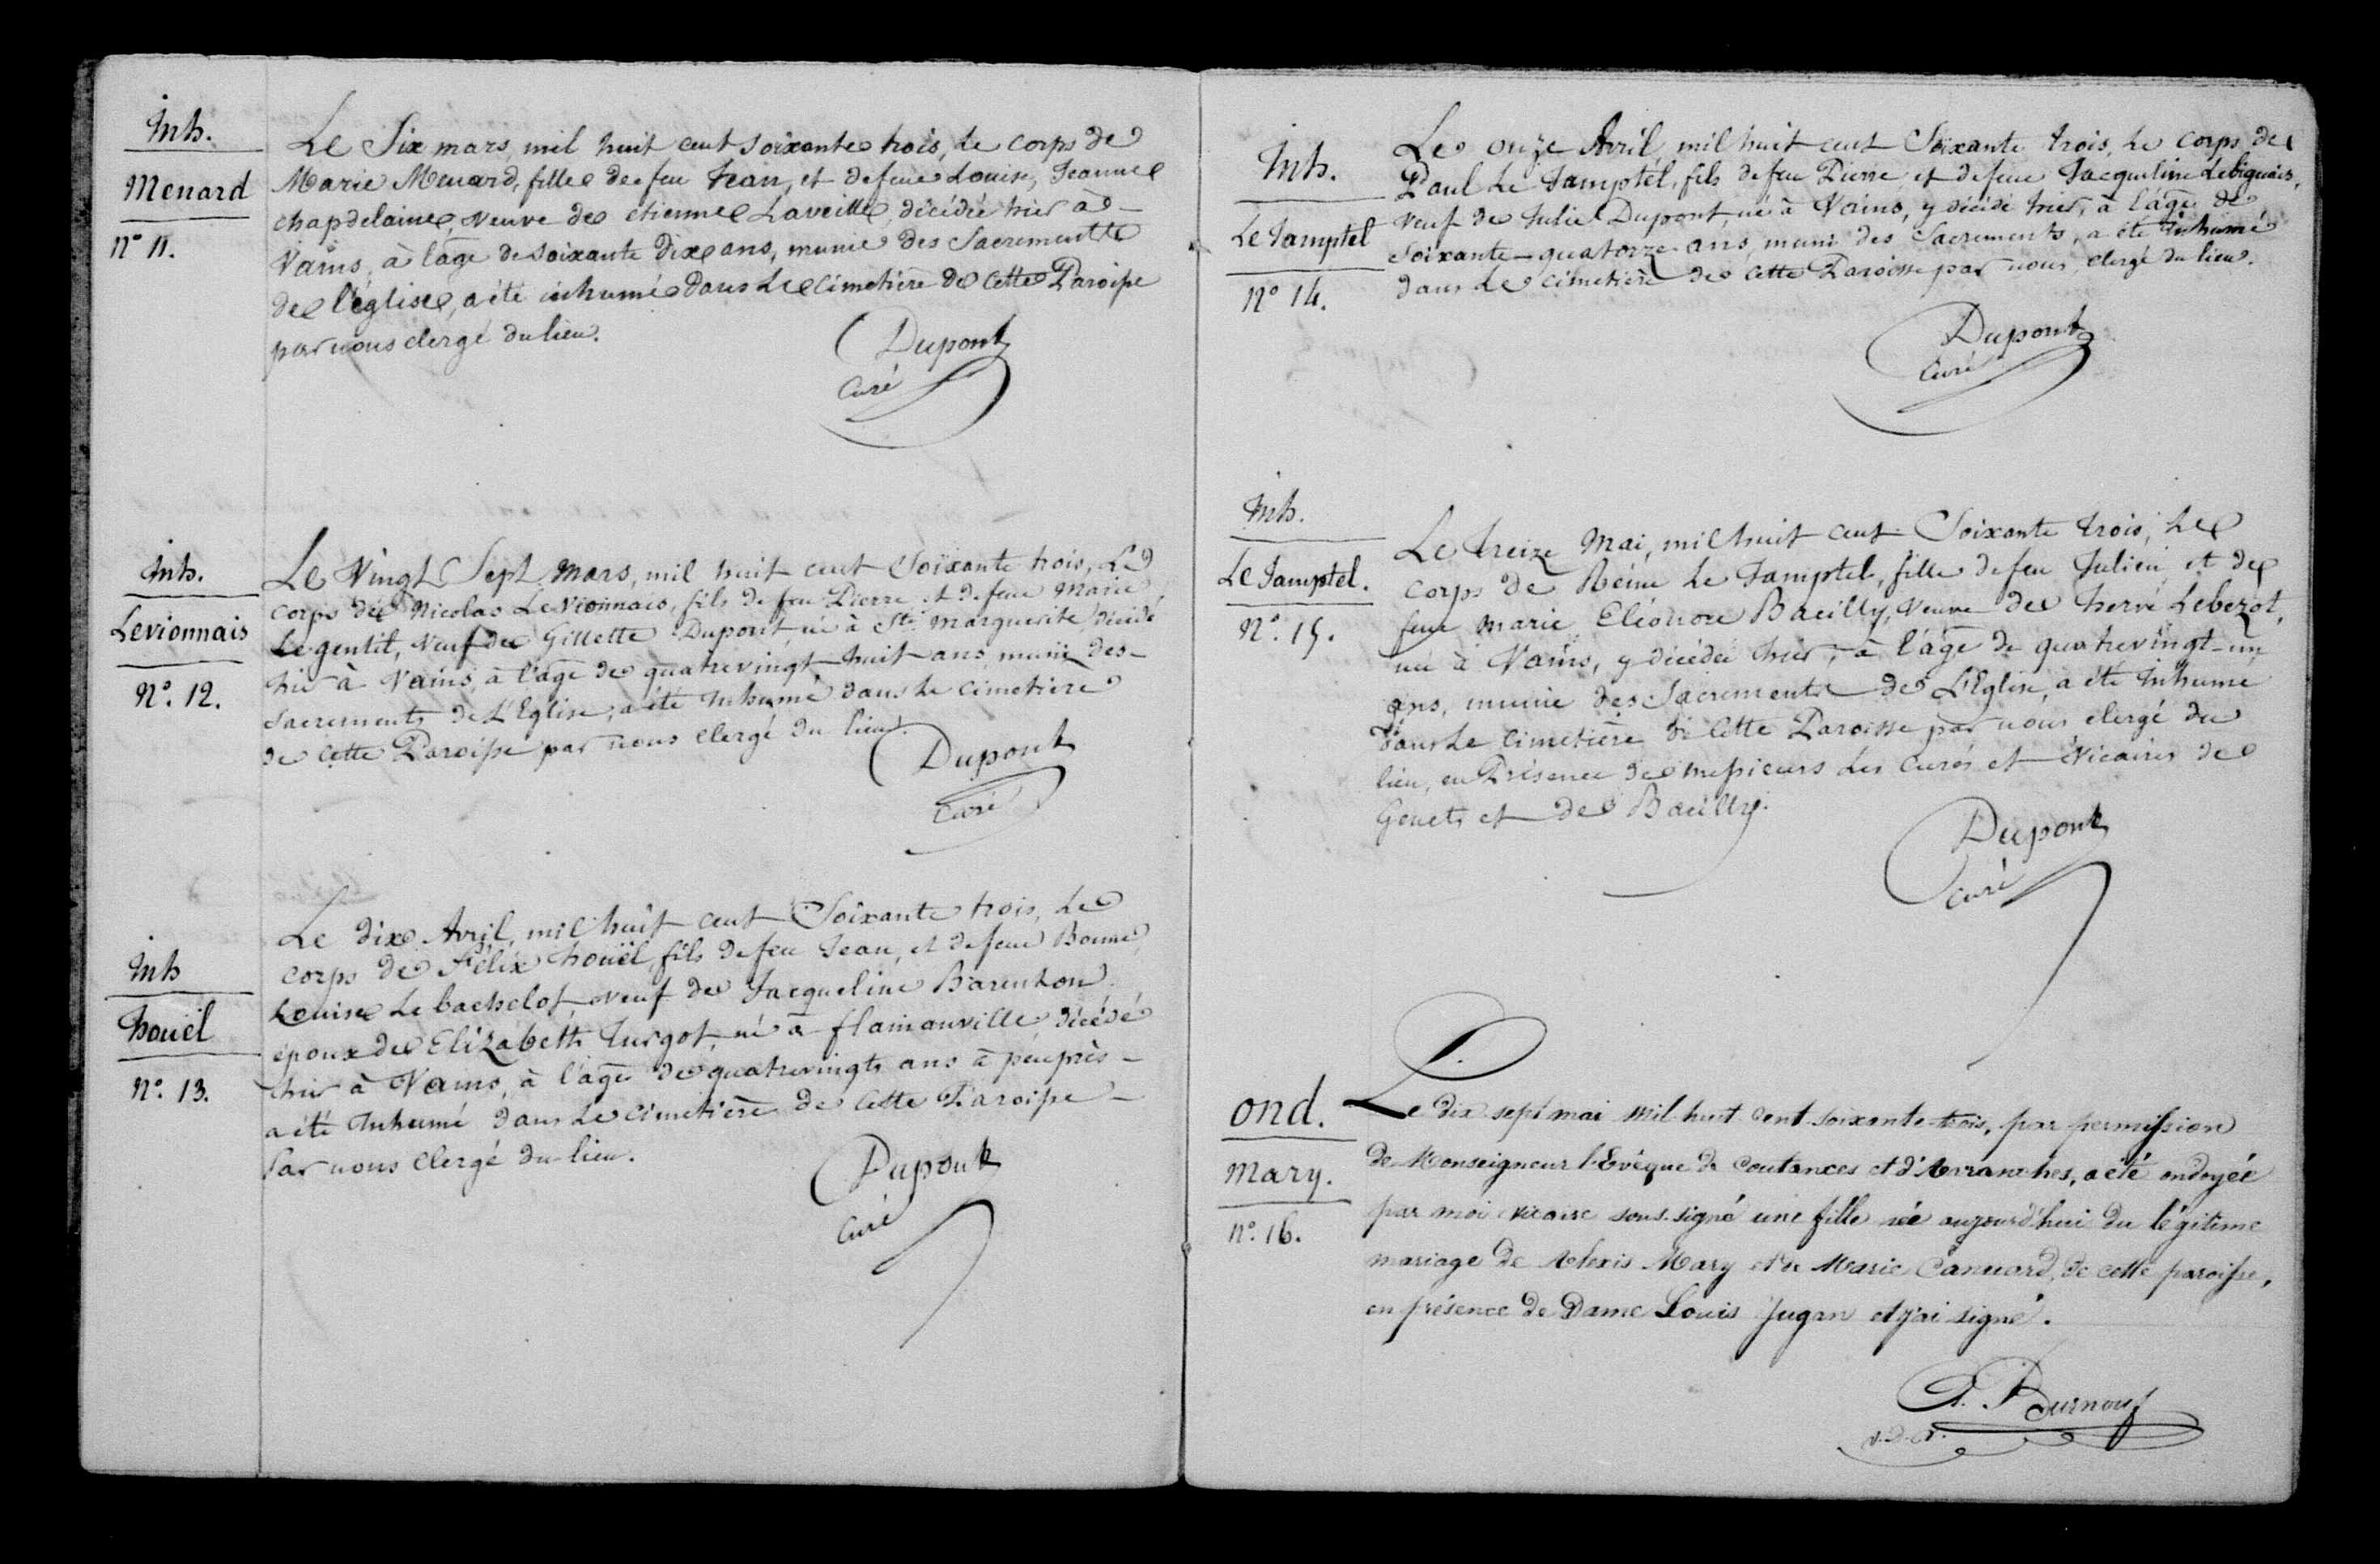 Inh.
Menard
N° 11.
Le Six mars, mil huit cent soixante trois, le corps de
Marie Menard, fille de feu Jean, et de feue Louise, Jeanne
chapdelaine, veuve de etienne Laveille, décédée hier à
Vains, à l'age de soixante dix ans, munie des Sacrements
de l'église, a été inhumé dans le cimetière de cette Paroisse
par nous clergé du lieu.
Dupont
Curé
Inh.
Levionnais
N°. 12.
Le Vingt Sept mars, mil huit cent Soixante trois, Le
corps de Nicolas Levionnais, fils de feu Pierre et de feue Marie
Legentil, veuf de Gillette Dupont, né à Ste marguerite, décédé
hier à Vains, à l'age de quatrevingt huit ans, muni des
Sacrements de L'Eglise, a été Inhumé dans le cimetière
de cette Paroisse par nous clergé du lieu.
Dupont
Curé
Inh
houël
N°. 13.
Le dix Avril, mil huit cent Soixante trois, Le
corps de Félix houël, fils de feu Jean, et de feue Bonne,
Louise Le bachelot, veuf de Jacqueline Barenton
époux de Elizabeth Turgot, né à flamanville, décédé
hier à Vains, à l'age de quatrevingts ans à peuprès
a été Inhumé dans le cimetière de cette Paroisse
Par nous clergé du lieu.
Dupont
Curé
Inh.
Le Jamptel
N° 14.
Le onze Avril, mil huit cent Soixante trois, Le corps de
Paul Le Jamptel, fils de feu Pierre et de feue Jacqueline
veuf de Julie Dupont, né à Vains, y décédé hier, à l'âge de
soixante-quatorze ans, muni des Sacrements, a été inhumé
dans le cimetière de cette Paroisse par nous, clergé du lieu.
Dupont
Curé
Inh.
Le Jamptel.
N°. 15.
Le treize Mai, mil huit cent Soixante trois, Le
corps de Reine Le Jamptel, fille de feu Julien et de
feue marie Eléonore Bacilly, Veuve de hervé Leberot,
née à Vains, y décédée hier, à l'âge de quatrevingt-un
ans, munie des Sacrements de L'Eglise, a été Inhumé
dans Le cimetière de cette Paroisse par nous clergé du
lieu, en Présence de messieurs Les curés et Vicaires de
Genets et de Bacilly.
Dupont
curé
ond.
Mary.
N°. 16.
Le dix sept mai mil huit cent soixante-trois, par permission
de Monseigneur l'Evêque de Coutances et d'Avranches, a été ondoyée
par moi vicaire sous-signé une fille née aujourd'hui du légitime
mariage de Alexis Mary et de Marie Canuard, de cette paroisse,
en présence de Dame Louis Jugan et j'ai signé.
Burnouf
v.d.v.